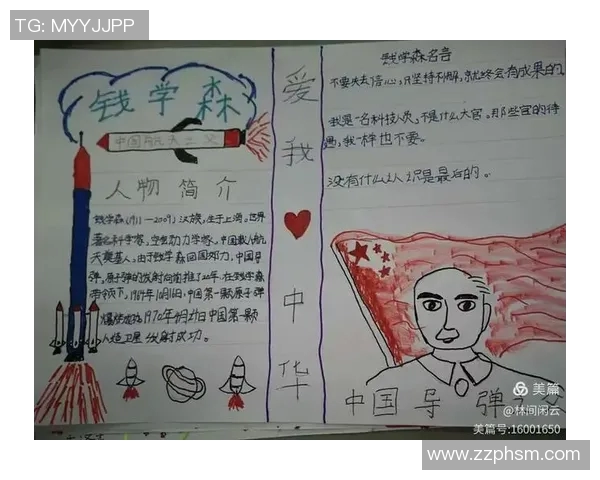 TG: MYYJJPP
钱学森
中国航天之父
人物简介
钱学森(1911—2009)汉族,生于上海。世界
著名科学家,空气动力学家,中国载人航
天奠基人,由于钱学森回国效力,中国导
弹,原子弹的发射向前推了20年,在钱学森
带领下,1964年10月16日,中国第一颗原子弹
爆炸成功,1970年4月24日中国第一颗
人造卫星发射成功。
爱我❤中华
钱学森名言
不要失去信心,只坚持利解,就终会有成果的。
我是一名科技人员,不是什么大官。那些官的待
遇,我一样也不要。
没有什么认识是最后的。
中国导弹之父
美篇
@林间闲云
美篇号:16001650
www.zzphsm.com